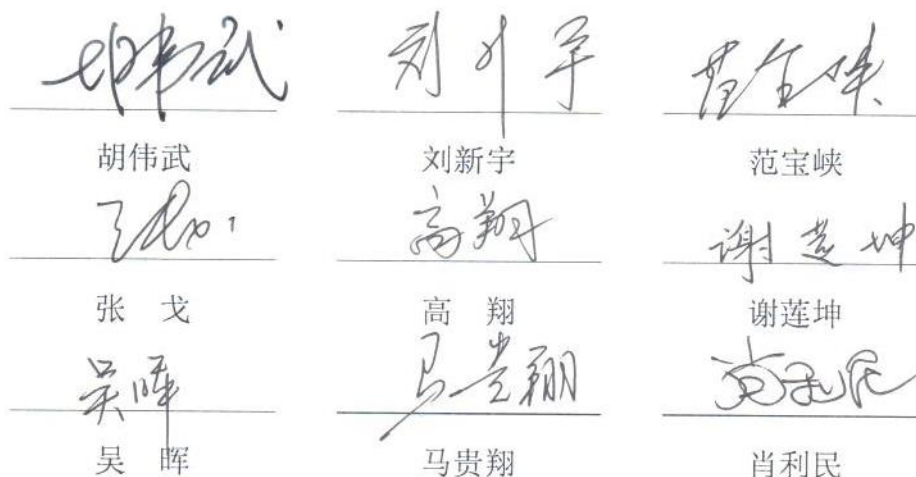 胡伟武 刘新宇 范宝峡
胡伟武 刘新宇 范宝峡
张戈 高翔 谢莲坤
张 戈 高 翔 谢莲坤
吴晖 马贵翔 肖利民
吴 晖 马贵翔 肖利民